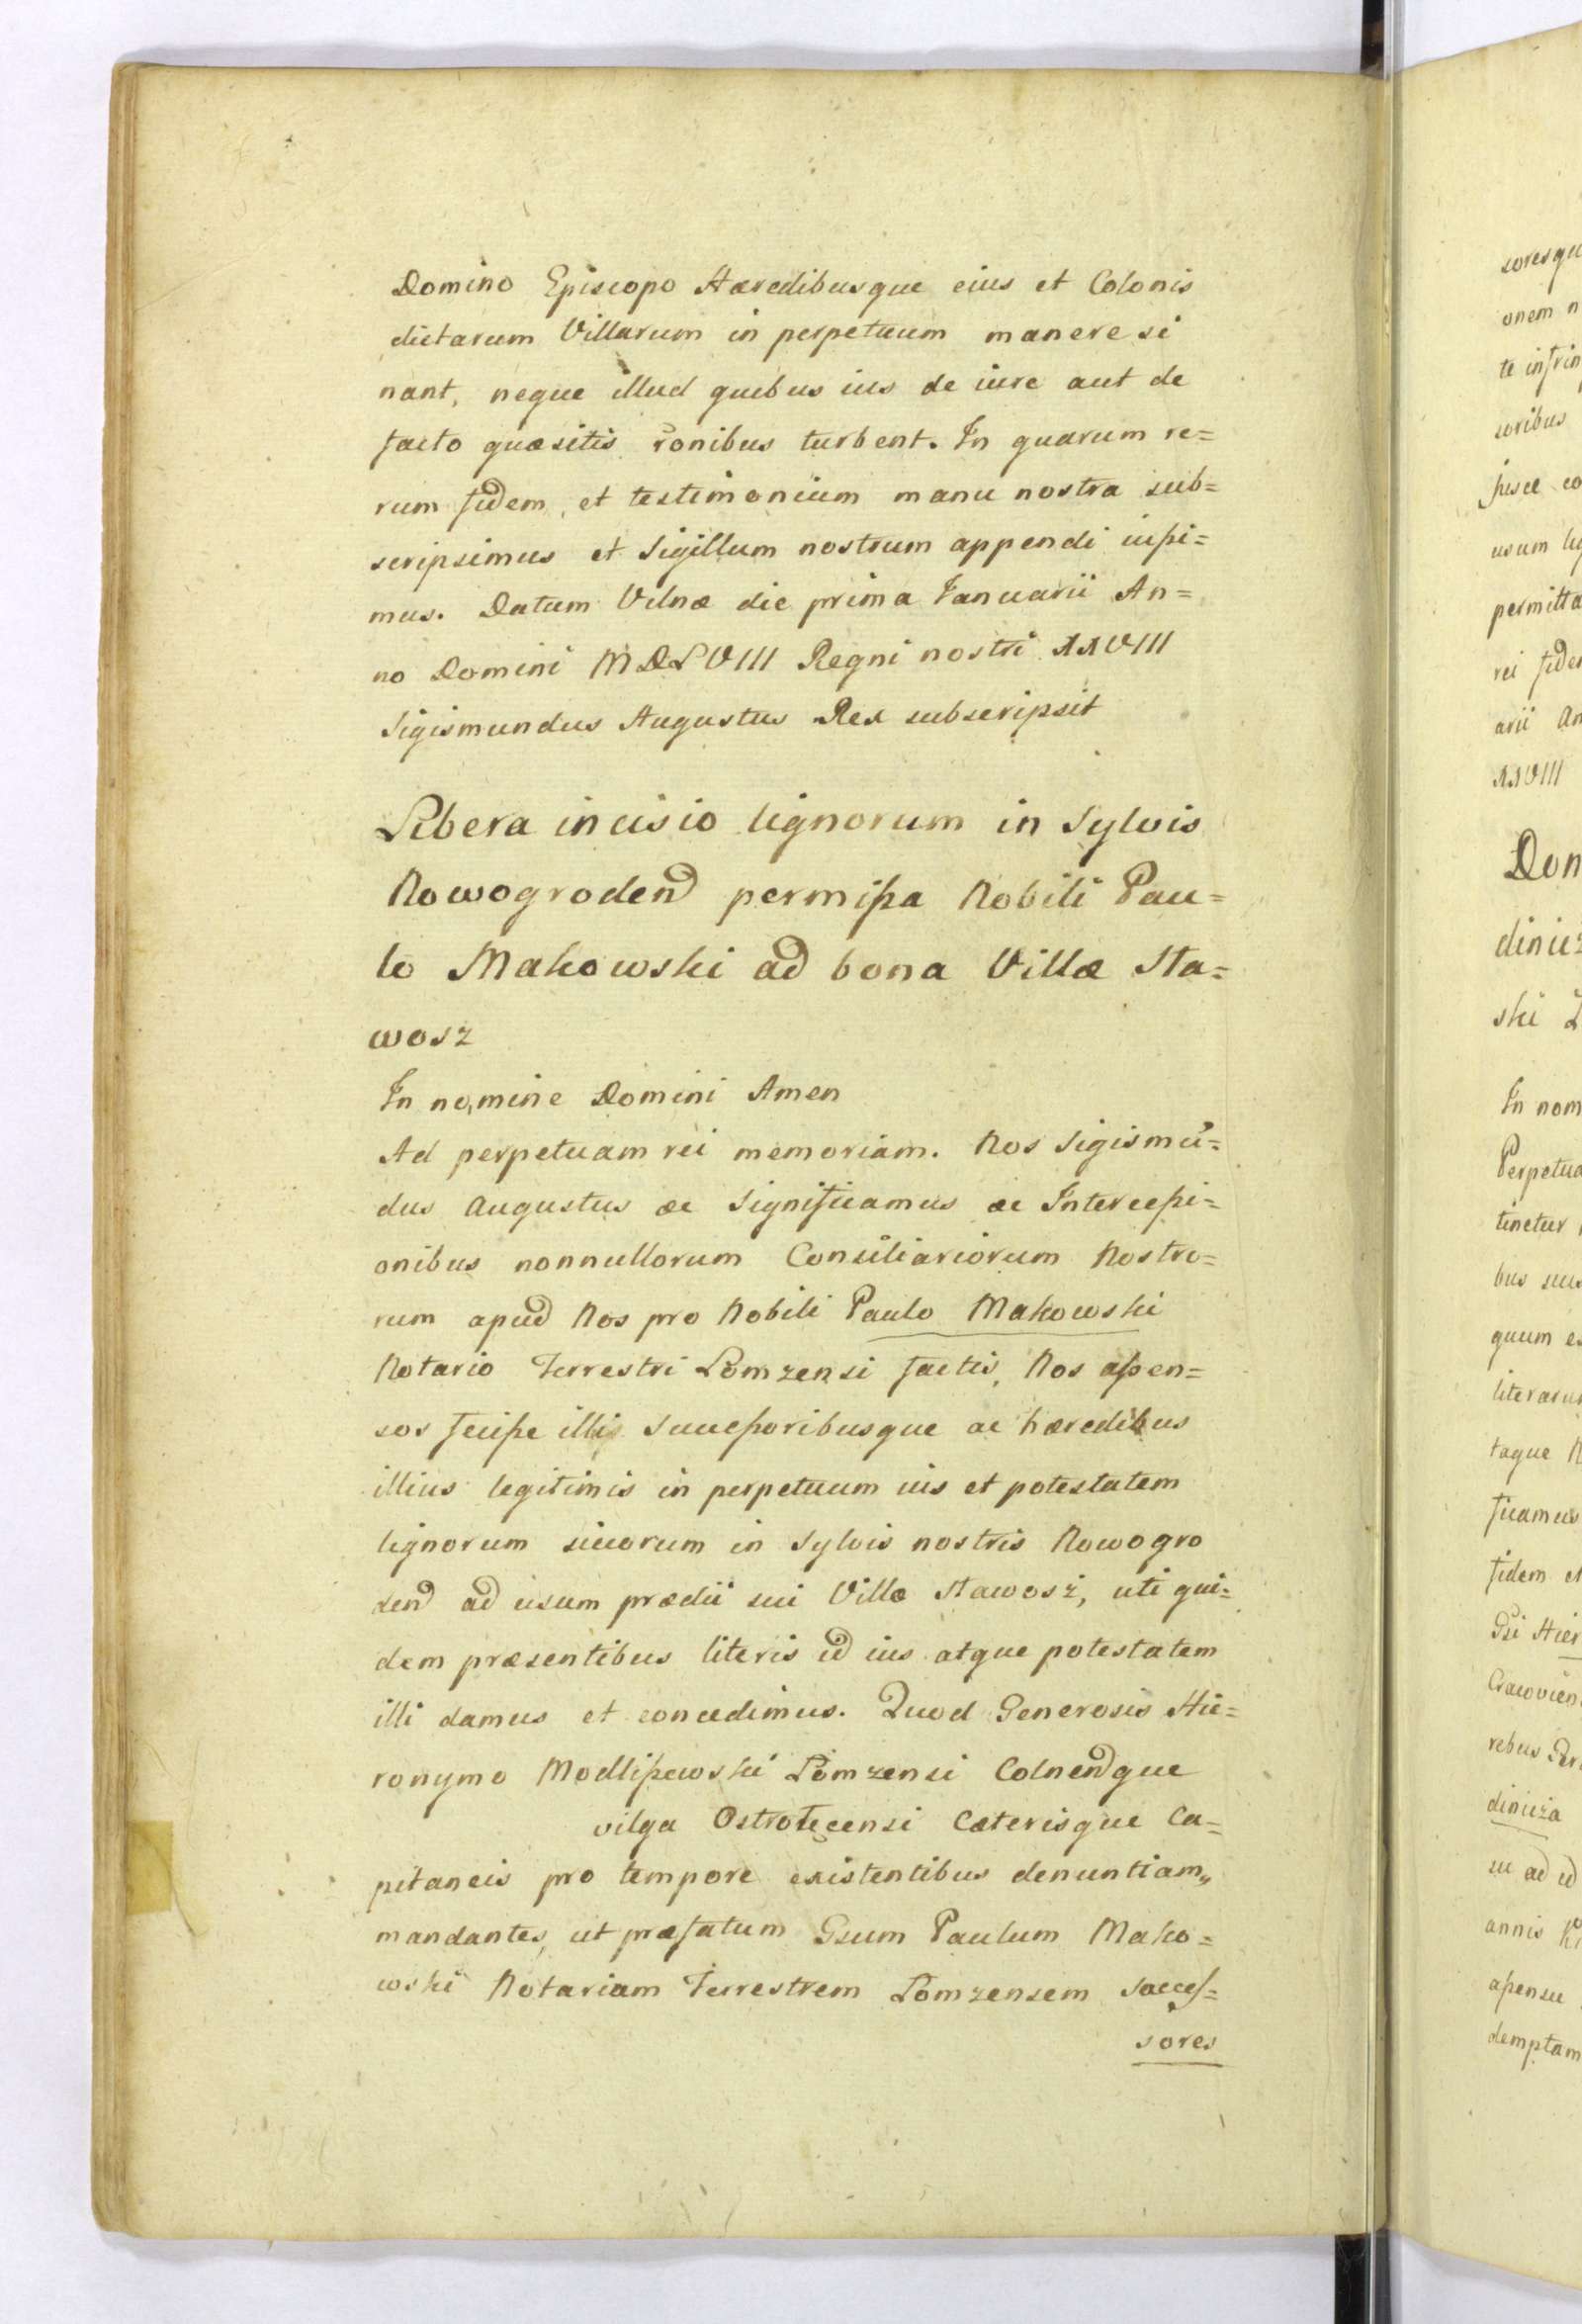 Domino Episcopo Hæredibusque eius et Colonis
dictarum Villarum in perpetuum manere si
nant, neque illud quibus ius de iure aut de
facto quæsitis ronibus turbent. In quarum re=
rum fidem, et testimonium manu nostra sub=
scripsimus et Sigillum nostrum appendi iußi=
mus. Datum Vilnæ die prima Januarii An=
no Domini MDLVIII Regni nostri XXVIII
Sigismundus Augustus Rex subscripsit
Libera incisio lignorum in Sylvis
Nowogrodend permißa Nobili Pau=
lo Makowski ad bona Villæ Sta=
wosz
In nomine Domini Amen
Ad perpetuam rei memoriam. Nos Sigismū=
dus Augustus æc Significamus æc Interceßi=
onibus nonnullorum Consiliariorum Nostro=
rum apud Nos pro Nobili Paulo Makowski
Notario Terrestri Lomzensi factis, Nos aßen=
sos feciße illi Succeßoribusque ac hæredibus
illius legitimis in perpetuum ius et potestatem
lignorum siccorum in Sylvis nostris Nowogro
dend ad usum prædii sui Villæ Stawosz, uti qui=
dem præsentibus literis id ius atque potestatem
illi damus et concedimus. Quod Generosis Hie=
ronymo Modlißewski Lomzensi Colnendque
vilga Ostrolecensi Cæterisque Ca=
pitaneis pro tempore existentibus denuntiam„
mandantes, ut præfatum Gsum Paulum Mako=
wski Notariam Terrestrem Lomzensem Succes=
sores
soresqu
onem n
te infrin
soribus
jusce co
usum lig
permitta
rei fide
arii An
XXVIII
Dom
dinic
ski L
In nom
Perpetua
tinetur
bus suis
quum e
literarum
taque N
ficamus
fidem et
Gsi Hier
Cracovien
rebus Ser
diniza
su ad id
annis
aßensu
demptam